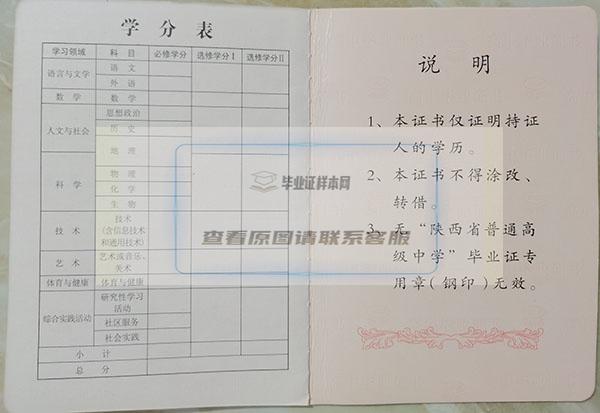 学分表
学习领域 科目 必修学分 选修学分Ⅰ 选修学分Ⅱ
语言与文学 语文
外语
数学 数学
人文与社会 思想政治
历史
地理
科学 物理
化学
生物
技术 技术
(含信息技术
和通用技术)
艺术 艺术或音乐、
美术
体育与健康 体育与健康
综合实践活动 研究性学习
活动
社区服务
社会实践
小计
总分
毕业证样本网
查看原图请联系客服
说明
1、本证书仅证明持证
人的学历。
2、本证书不得涂改、
转借。
3、无“陕西省普通高
级中学”毕业证专
用章(钢印)无效。